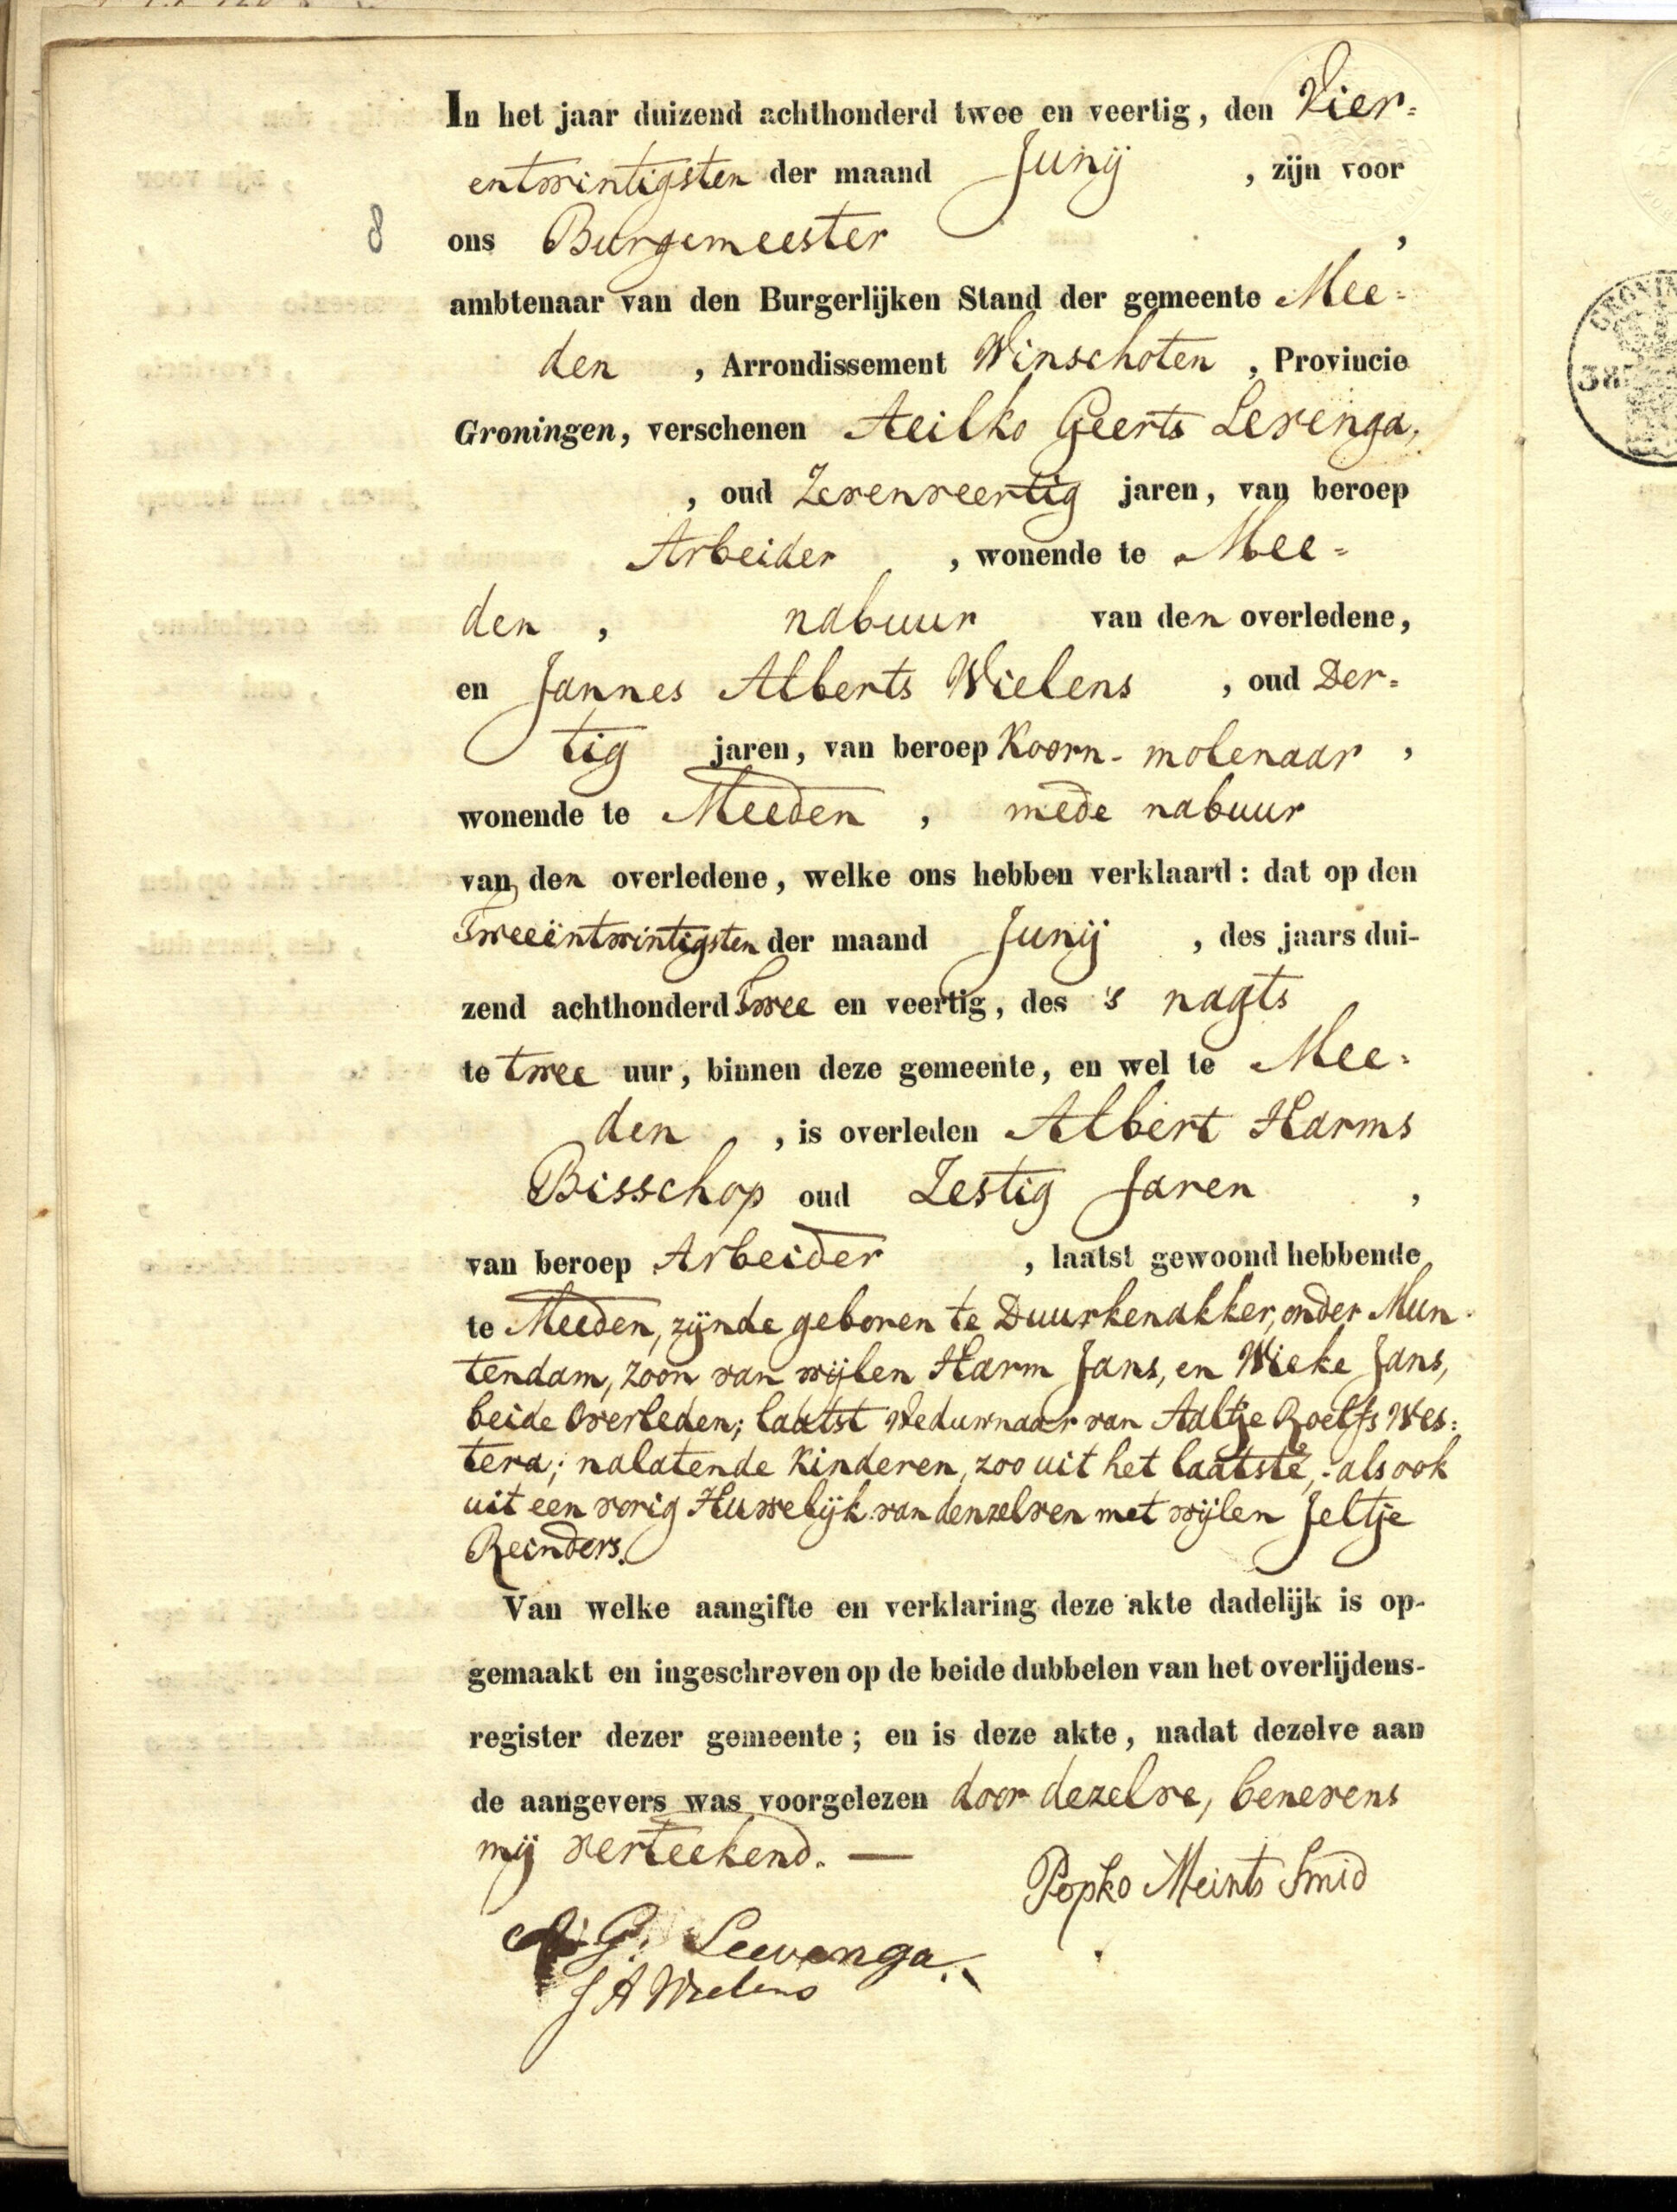 In het jaar duizend achthonderd twee en veertig, den Vier=
entwintigsten der maand Junij , zijn voor
8 ons Burgemeester ,
ambtenaar van den Burgerlijken Stand der gemeente Mee=
den , Arrondissement Winschoten , Provincie
Groningen, verschenen Aeilko Geerts Levenga,
, oud Zevenveertig jaren, van beroep
Arbeider , wonende te Mee=
den , nabuur van den overledene,
en Jannes Alberts Wielens , oud Der=
tig jaren, van beroep Koorn- molenaar ,
wonende te Meeden , mede nabuur
van den overledene, welke ons hebben verklaard: dat op den
Tweeëntwintigsten der maand Junij , des jaars dui-
zend achthonderd Twee en veertig, des 's nagts
te twee uur, binnen deze gemeente, en wel te Mee=
den , is overleden Albert Harms
Bisschop oud Zestig Jaren ,
van beroep Arbeider , laatst gewoond hebbende
te Meeden, zijnde geboren te Duurkenakker, onder Mun-
tendam, zoon van wijlen Harm Jans, en Wieke Jans,
beide Overleden; laatst Weduwnaar van Aaltje Roelfs Wes=
tera; nalatende Kinderen, zoo uit het laatste,- als ook
uit een vorig Huwelijk van denzelven met wijlen Jeltje
Reinders.
Van welke aangifte en verklaring deze akte dadelijk is op-
gemaakt en ingeschreven op de beide dubbelen van het overlijdens-
register dezer gemeente; en is deze akte, nadat dezelve aan
de aangevers was voorgelezen door dezelve, benevens
mij verteekend. —
Popko Meints Smid
A. G. Leevenga.
J A Wielens